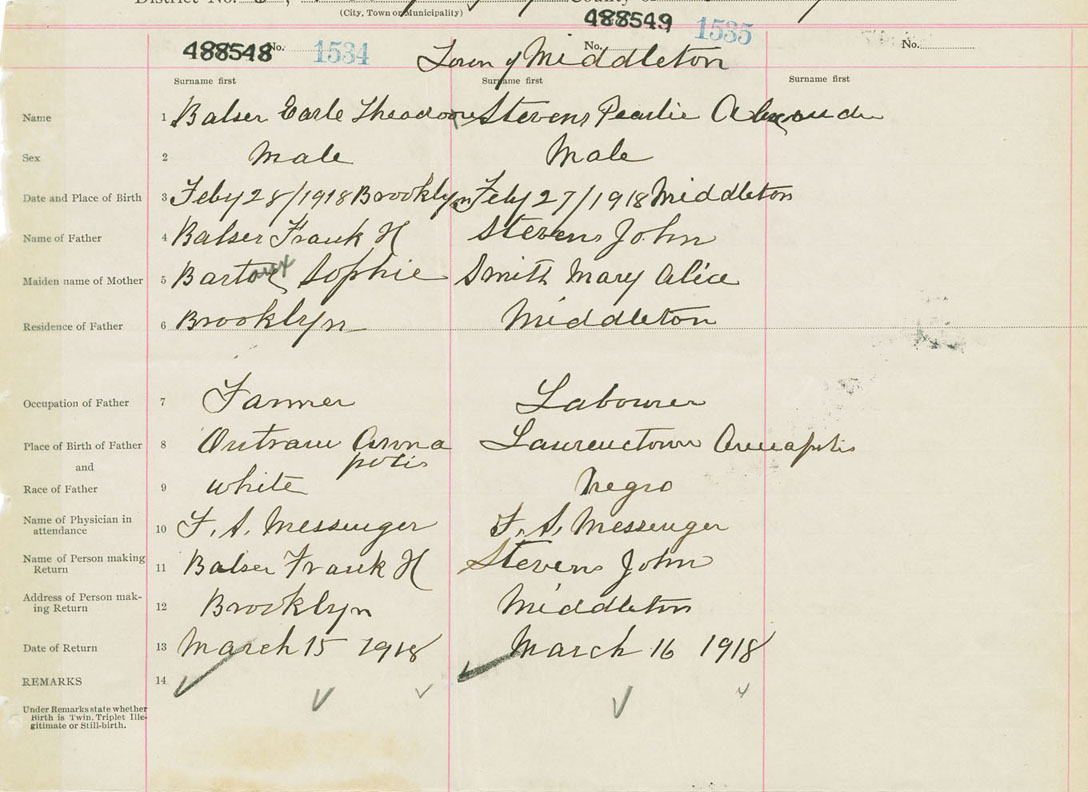 District No.
County of
(City, Town or Municipality)
488548 No. 1534
488549 No. 1535
No.
Town of Middleton
Surname first Surname first Surname first
Name 1 Balser Earle Theadore Stevens Pearlie
Sex 2 Male Male
Date and Place of Birth 3 Feby 28/1918 Brooklyn Feby 27/1918 Middleton
Name of Father 4 Balser Frank H Stevens John
Maiden name of Mother 5 Sophie Smith Mary Alice
Residence of Father 6 Brooklyn Middleton
Occupation of Father 7 Farmer Labourer
Place of Birth of Father 8 Outram Anna Laurenctown Annapolis
polis
and
Race of Father 9 White Negro
Name of Physician in
attendance 10 F. S. Messenger F. S. Messenger
Name of Person making
Return 11 Balser Frank H Stevens John
Address of Person mak-
ing Return 12 Brooklyn Middleton
Date of Return 13 March 15 1918 March 16 1918
REMARKS 14
Under Remarks state whether
Birth is Twin, Triplet Ille-
gitimate or Still-birth.